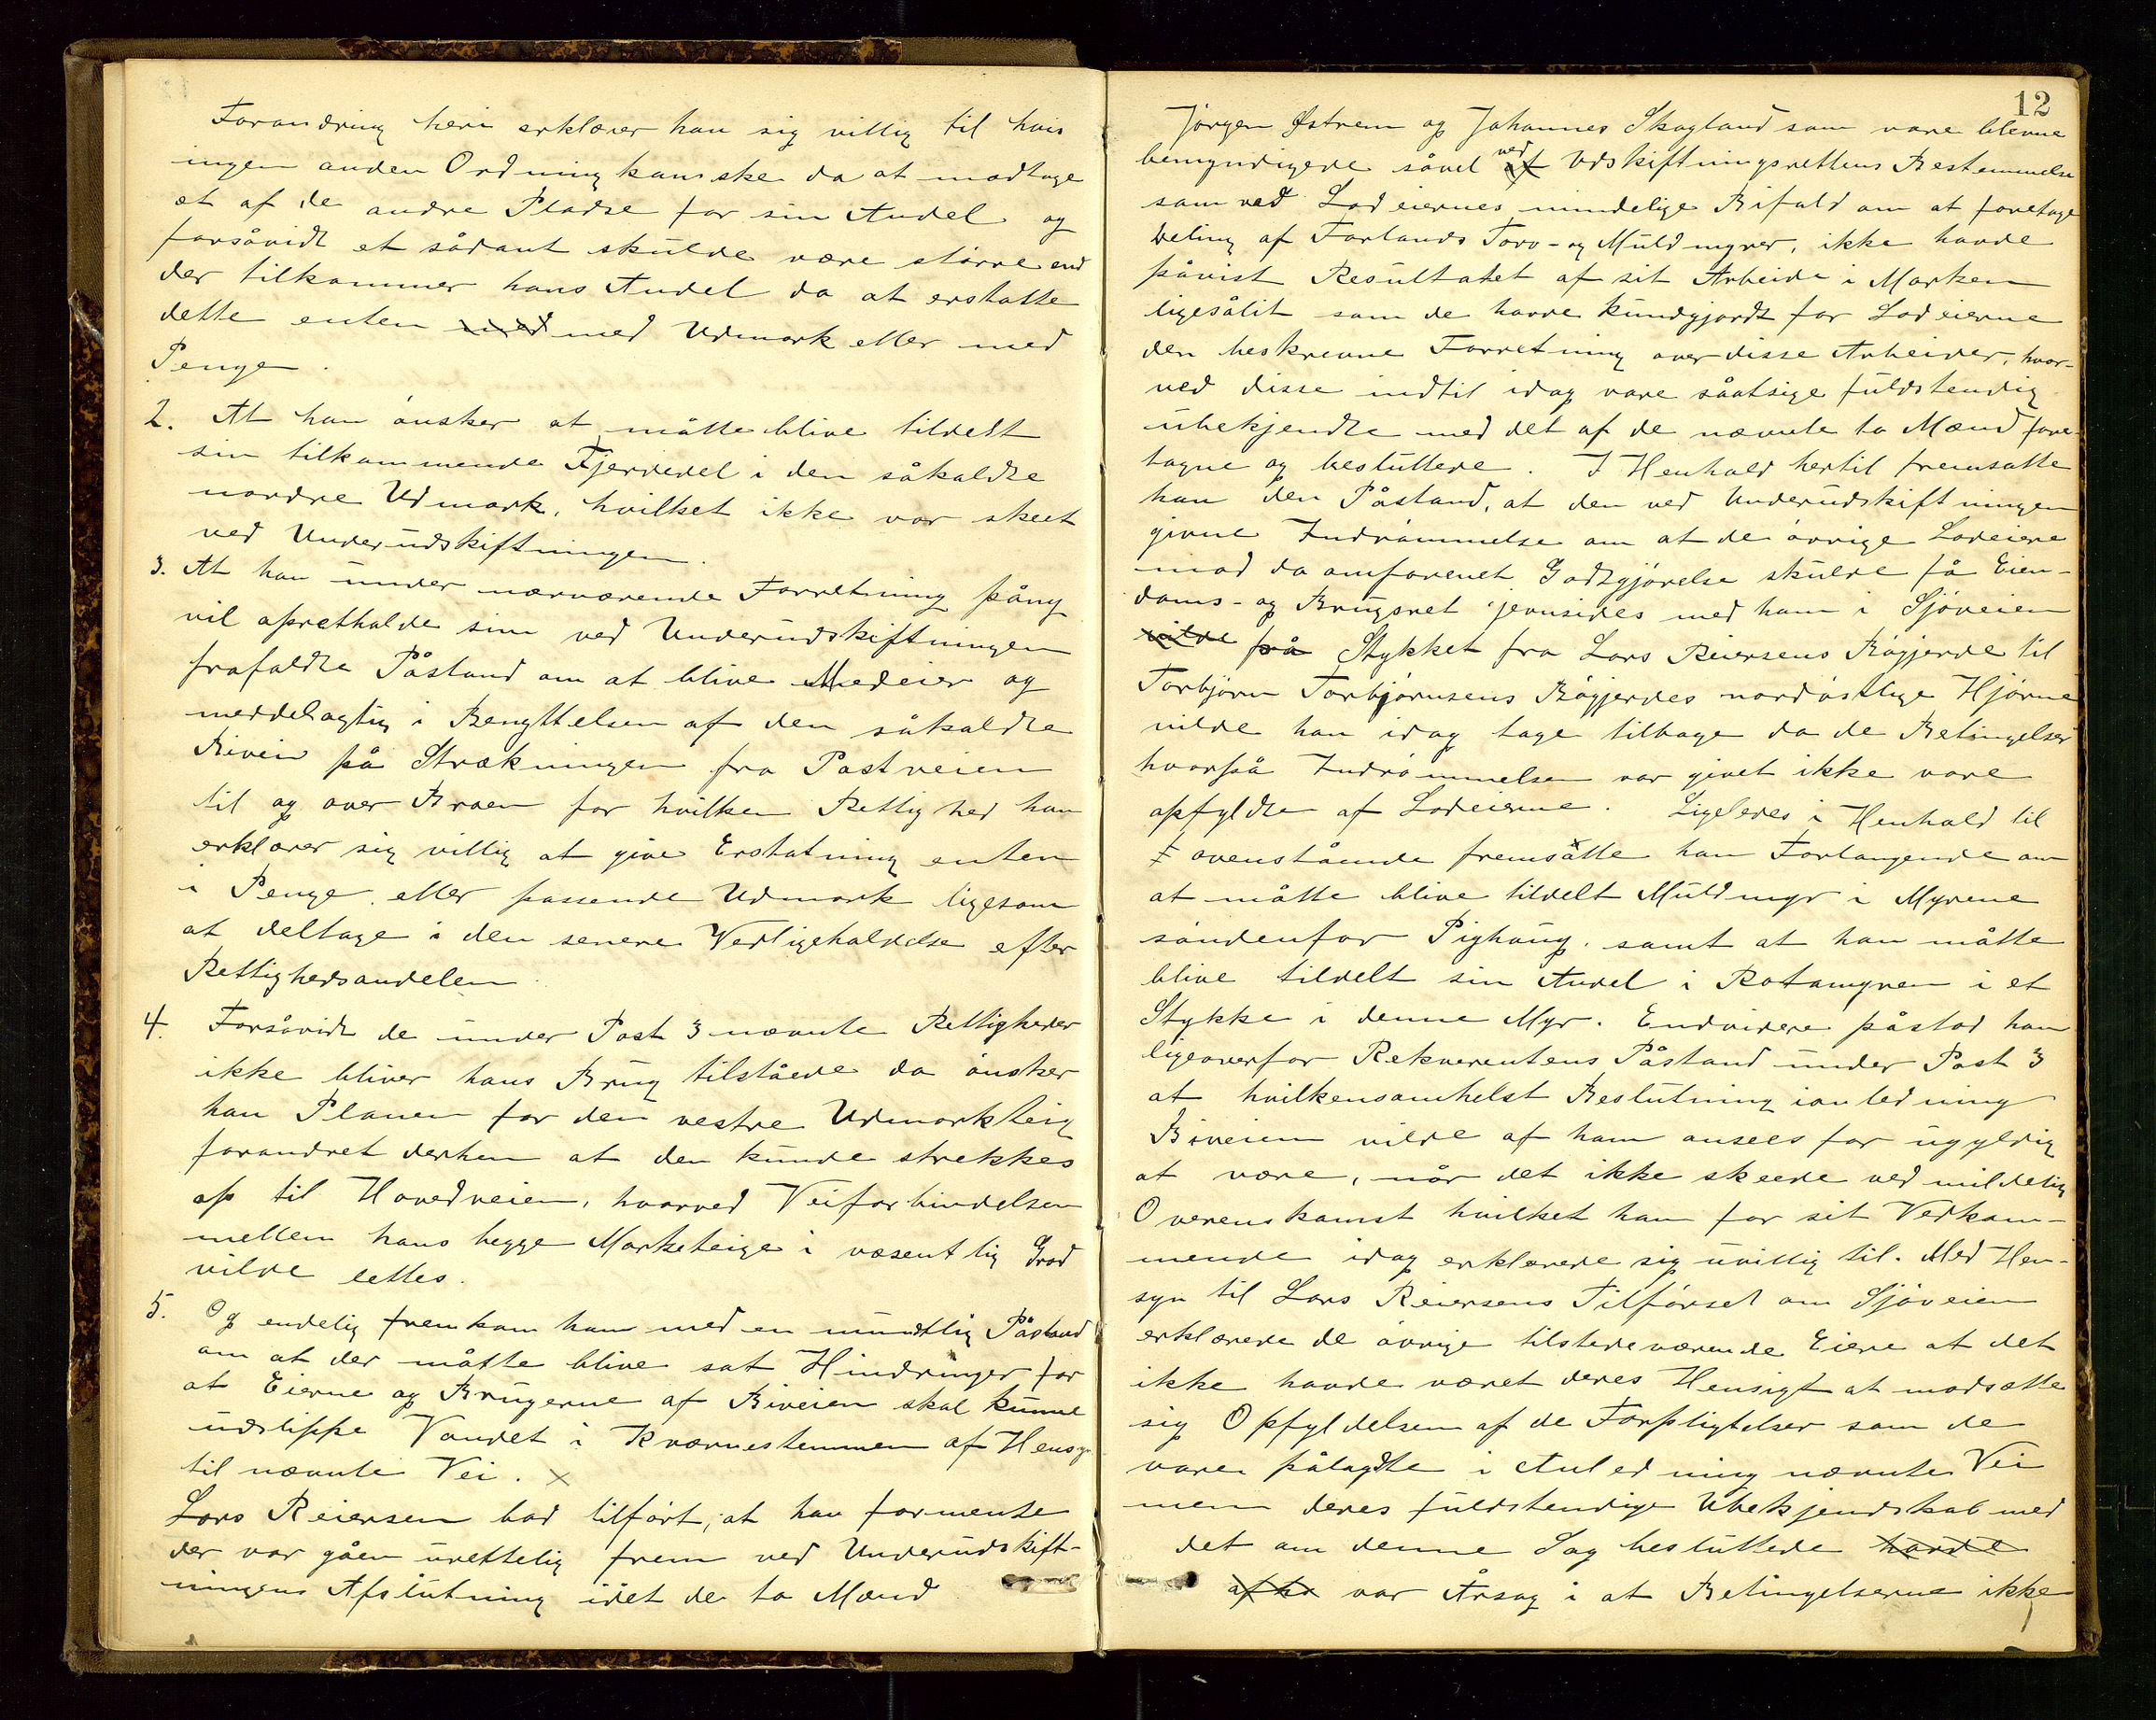 Forandring heri erklærer han sig villig til hvis
ingen anden Ordning kan ske da at modtage
et af de andre Pladse for sin Andel og
forsåvidt et sådant skulde være større end
der tilkommer hans Andel da at erstatte
dette enten med med Udmark eller med
Penge.
2. At han ønsker at måtte blive tildelt
sin tilkommende Fjerdedel i den såkaldte
nordre Udmark, hvilket ikke var skeet
ved Underudskiftningen.
3. At han under nærværende Forretning påny
vil opretholde sin ved Underudskiftningen
frafaldte Påstand om at blive Medeier og
meddelagtig i Benyttelsen af den såkaldte
Bivei på Strækningen fra Postveien
til og over Broen for hvilken Rettighed han
erklærer sig villig at give Erstatning enten
i Penge eller passende Udmark ligesom
at deltage i den senere Vedligeholdelse efter
Rettighedsandelen
4. Forsåvidt de under Post 3 nævnte Rettigheder
ikke bliver hans Brug tilståede da ønsker
han Planen for den vestre Udmarkteig
forandret derhen at den kunde strekkes
op til Hovedveien, hvorved Veiforbindelsen
mellem hans begge Marketeige i væsentlig Grad
vilde lettes.
5. Og endelig fremkom han med en mundtlig Påstand
om at der måtte blive sat Hindringer for
at Eierne og Brugerne af Biveien skal kunne
udslippe Vandet i Kværnestemmen af Hensyn
til nævnte Vei. x
Lars Reiersen bad tilført, at han formente
der var gåen urettelig frem ved Underudskift-
ningens Afslutning idet de to Mænd
12
Jørgen Østrem og Johannes Skogland som vare blevne
bemyndigede såvel af ved Udskiftningsrettens Bestemmelse
som ved Lodeiernes mindelige Bifald om at foretage
Deling af Forlands Torv- og Muldmyrer, ikke havde
påvist Resultatet af sit Arbeide i Marken
ligesålit som de havde kundgjordt for Lodeierne
den beskrevne Forretning over disse Arbeider, hvor-
ved disse indtil idag vare såatsige fuldstendig
ubekjendte med det af de nævnte to Mænd fore-
tagne og besluttede. I Henhold hertil fremsatte
han den Påstand, at den ved Underudskiftningen
givne Indrømmelse om at de øvrige Lodeiere
mod da omforenet Godtgjørelse skulde få Eien-
doms- og Brugsret jevnsides med ham i Sjøveien
vilde på Stykket fra Lars Reiersens Bøgjerde til
Torbjørn Torbjørnsens Bøgjerdes nordøstlige Hjørne
vilde han idag tage tilbage da de Betingelser
hvorpå Indrømmelsen var givet ikke vare
opfyldte af Lodeierne. Ligeledes i Henhold til
ovenstående fremsatte han Forlangende om
at måtte blive tildelt Muldmyr i Myrene
søndenfor Pighaug, samt at han måtte
blive tildelt sin Andel i Rotamyren i et
Stykke i denne Myr. Endvidere påstod han
ligeoverfor Rekverentens Påstand under Post 3
at hvilkensomhelst Beslutning ianledning
Biveien vilde af ham ansees for ugyldig
at være, når det ikke skeede ved mildelig
Overenskomst hvilket han for sit Vedkom-
mende idag erklærede sig uvillig til. Med Hen-
syn til Lars Reiersens Tilførsel om Sjøveien
erklærede de øvrige tilstedeværende Eiere at det
ikke havde været deres Hensigt at modsætte
sig Opfyldelsen af de Forpligtelser som de
vare pålagdte i Anledning nævnte Vei
men deres fuldstendige Ubekjendskab med
det om denne Sag besluttede havde
var Årsag i at Betingelserne ikke